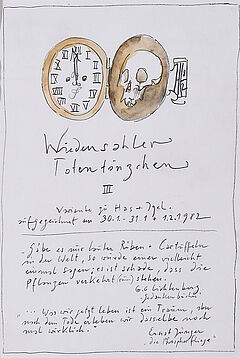 Wiedensahler
Totentänzchen
III
Variante zu Has + Igel.
aufgezeichnet am 30.1.-31.1 + 1.2.1982
"Gäbe es nur Rüben + Cartoffeln
in der Welt, so würde einer vielleicht
einmal sagen; es ist schade, dass die
Pflanzen verkehrt stehen.
G.C Lichtenberg,
"... Was wir jetzt leben ist ein Traum, aber
nach dem Tode erleben wir dasselbe noch
mal wirklich."
Ernst Jünger